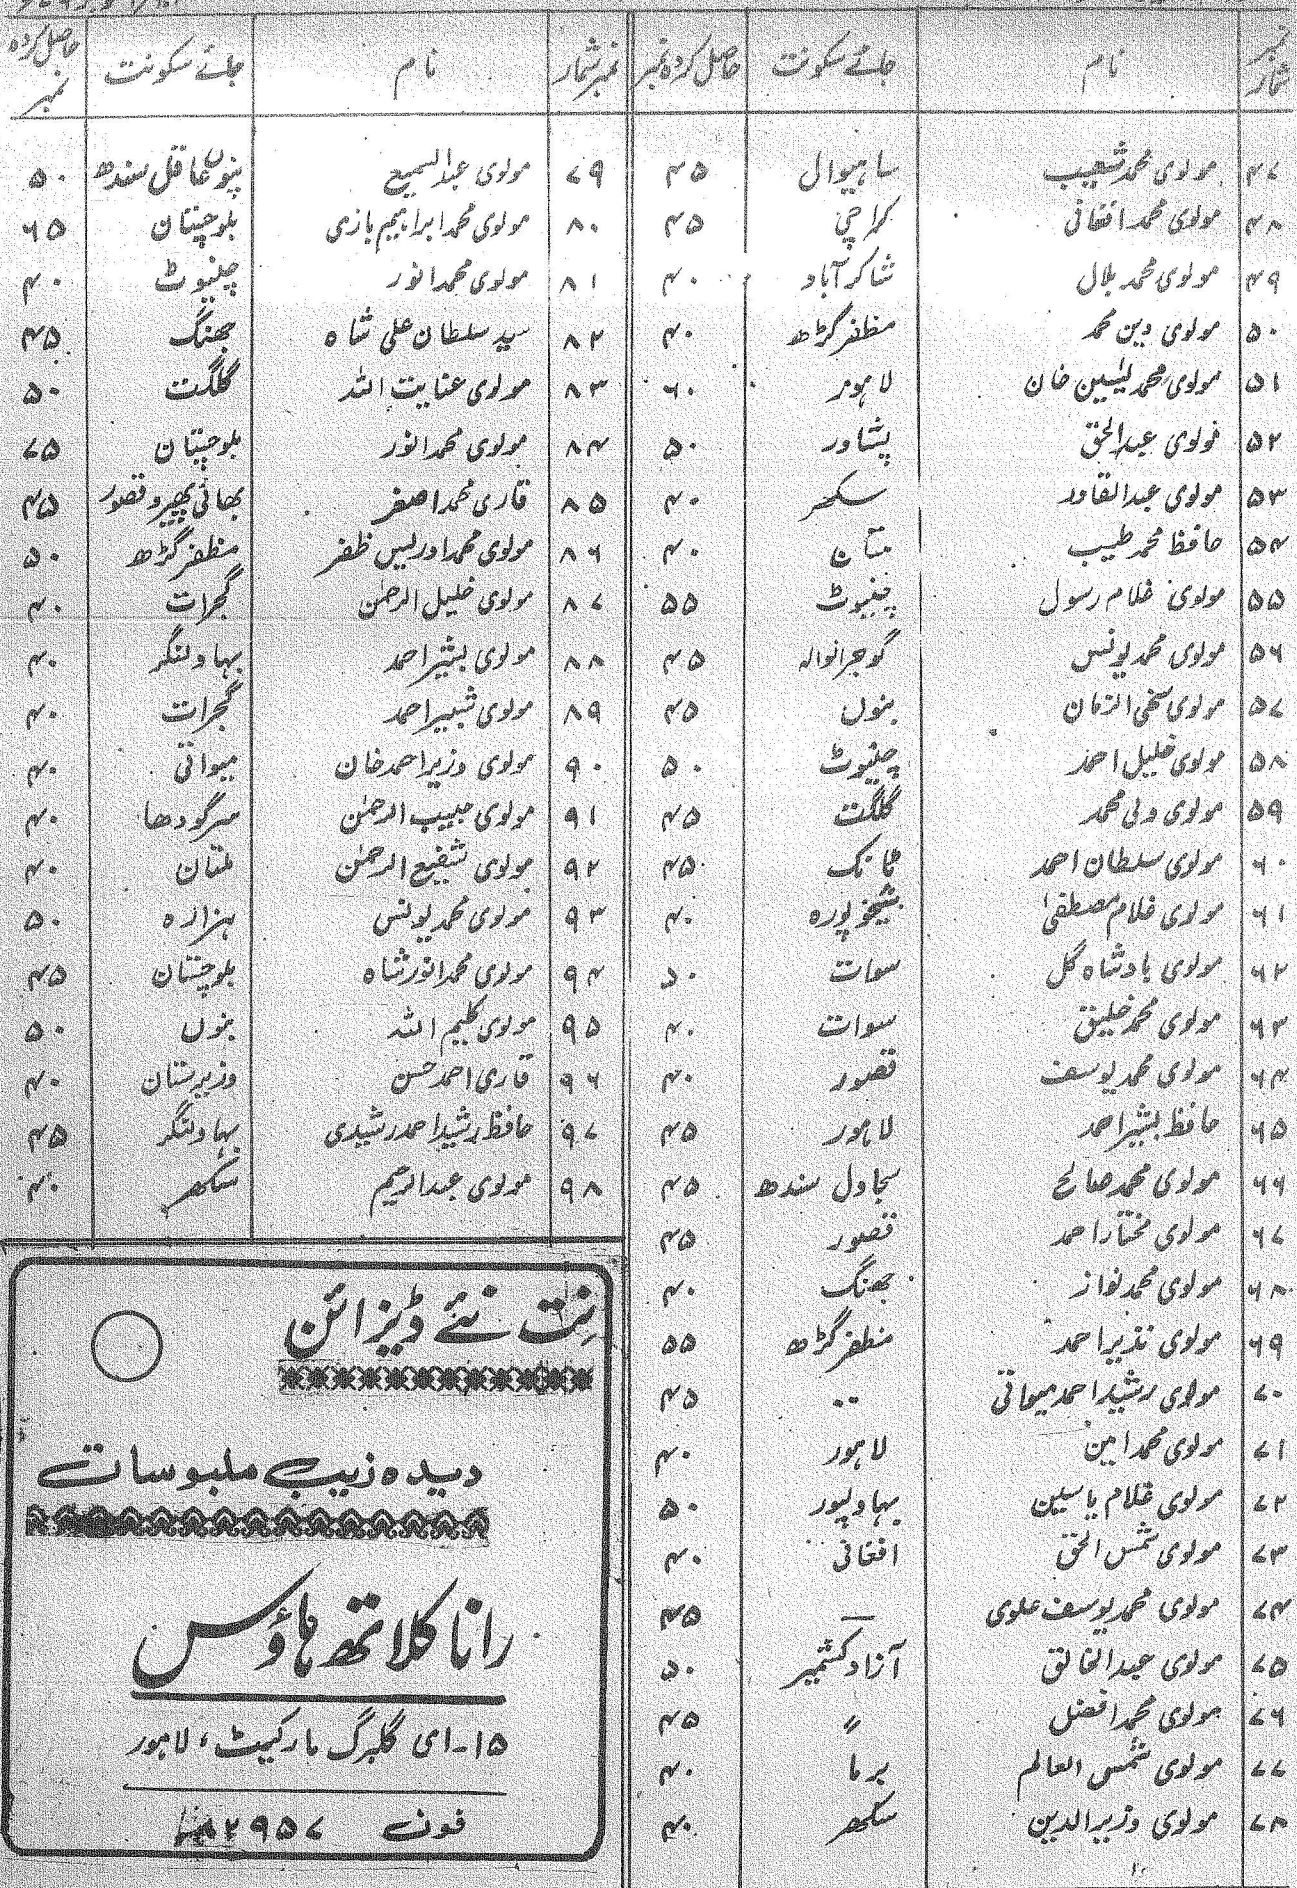 نمبر شمار نام جائے سکونت حاصل کردہ نمبر
۴۷ مولوی محمد شعیب ساہیوال ۴۵
۴۸ مولوی محمد افغانی کراچی ۴۵
۴۹ مولوی محمد بلال شاکر آباد ۴۰
۵۰ مولوی دین محمد مظفر گڑھ ۴۰
۵۱ مولوی محمد یٰسین خان لاہور ۶۰
۵۲ مولوی عبدالحق پشاور ۵۰
۵۳ مولوی عبدالقادر سکھر ۴۰
۵۴ حافظ محمد طیب ملتان ۴۰
۵۵ مولوی غلام رسول چنیوٹ ۵۵
۵۶ مولوی محمد یونس گوجرانوالہ ۴۵
۵۷ مولوی سخی الزمان بنوں ۴۵
۵۸ مولوی خلیل احمد چنیوٹ ۵۰
۵۹ مولوی ولی محمد گلگت ۴۵
۶۰ مولوی سلطان احمد ٹانک ۴۵
۶۱ مولوی غلام مصطفیٰ شیخوپورہ ۴۰
۶۲ مولوی بادشاہ گل سوات ۵۰
۶۳ مولوی محمد خلیق سوات ۴۰
۶۴ مولوی محمد یوسف قصور ۴۰
۶۵ حافظ بشیر احمد لاہور ۴۵
۶۶ مولوی محمد صالح سجاول سندھ ۴۵
۶۷ مولوی مختار احمد قصور ۴۵
۶۸ مولوی محمد نواز جھنگ ۴۰
۶۹ مولوی نذیر احمد مظفر گڑھ ۵۵
۷۰ مولوی رشید احمد میواتی ״ ۴۵
۷۱ مولوی محمد امین لاہور ۴۰
۷۲ مولوی غلام یاسین بہاولپور ۵۰
۷۳ مولوی شمس الحق افغانی ۴۰
۷۴ مولوی محمد یوسف علوی — ۴۵
۷۵ مولوی عبدالخالق آزاد کشمیر ۵۰
۷۶ مولوی محمد افضل ״ ۴۵
۷۷ مولوی شمس العالم برما ۴۰
۷۸ مولوی وزیر الدین سکھر ۴۰
نمبر شمار نام جائے سکونت حاصل کردہ نمبر
۷۹ مولوی عبدالسمیع پنوں عاقل سندھ ۵۰
۸۰ مولوی محمد ابراہیم بازی بلوچستان ۶۵
۸۱ مولوی محمد انور چنیوٹ ۴۰
۸۲ سید سلطان علی شاہ جھنگ ۴۵
۸۳ مولوی عنایت اللہ گلگت ۵۰
۸۴ مولوی محمد انور بلوچستان ۷۵
۸۵ قاری محمد اصغر بھائی پھیرو قصور ۴۵
۸۶ مولوی محمد ادریس ظفر مظفر گڑھ ۵۰
۸۷ مولوی خلیل الرحمٰن گجرات ۴۰
۸۸ مولوی بشیر احمد بہاولنگر ۴۰
۸۹ مولوی شبیر احمد گجرات ۴۰
۹۰ مولوی وزیر احمد خان میواتی ۴۰
۹۱ مولوی حبیب الرحمٰن سرگودھا ۴۰
۹۲ مولوی شفیع الرحمٰن ملتان ۴۰
۹۳ مولوی محمد یونس ہزارہ ۵۰
۹۴ مولوی محمد انور شاہ بلوچستان ۴۵
۹۵ مولوی کلیم اللہ بنوں ۵۰
۹۶ قاری احمد حسن وزیرستان ۴۰
۹۷ حافظ رشید احمد رشیدی بہاولنگر ۴۵
۹۸ مولوی عبدالرحیم سکھر ۴۰
نِت نئے ڈیزائن
دیدہ زیب ملبوسات
رانا کلاتھ ہاؤس
۱۵-ای گلبرگ مارکیٹ، لاہور
فون